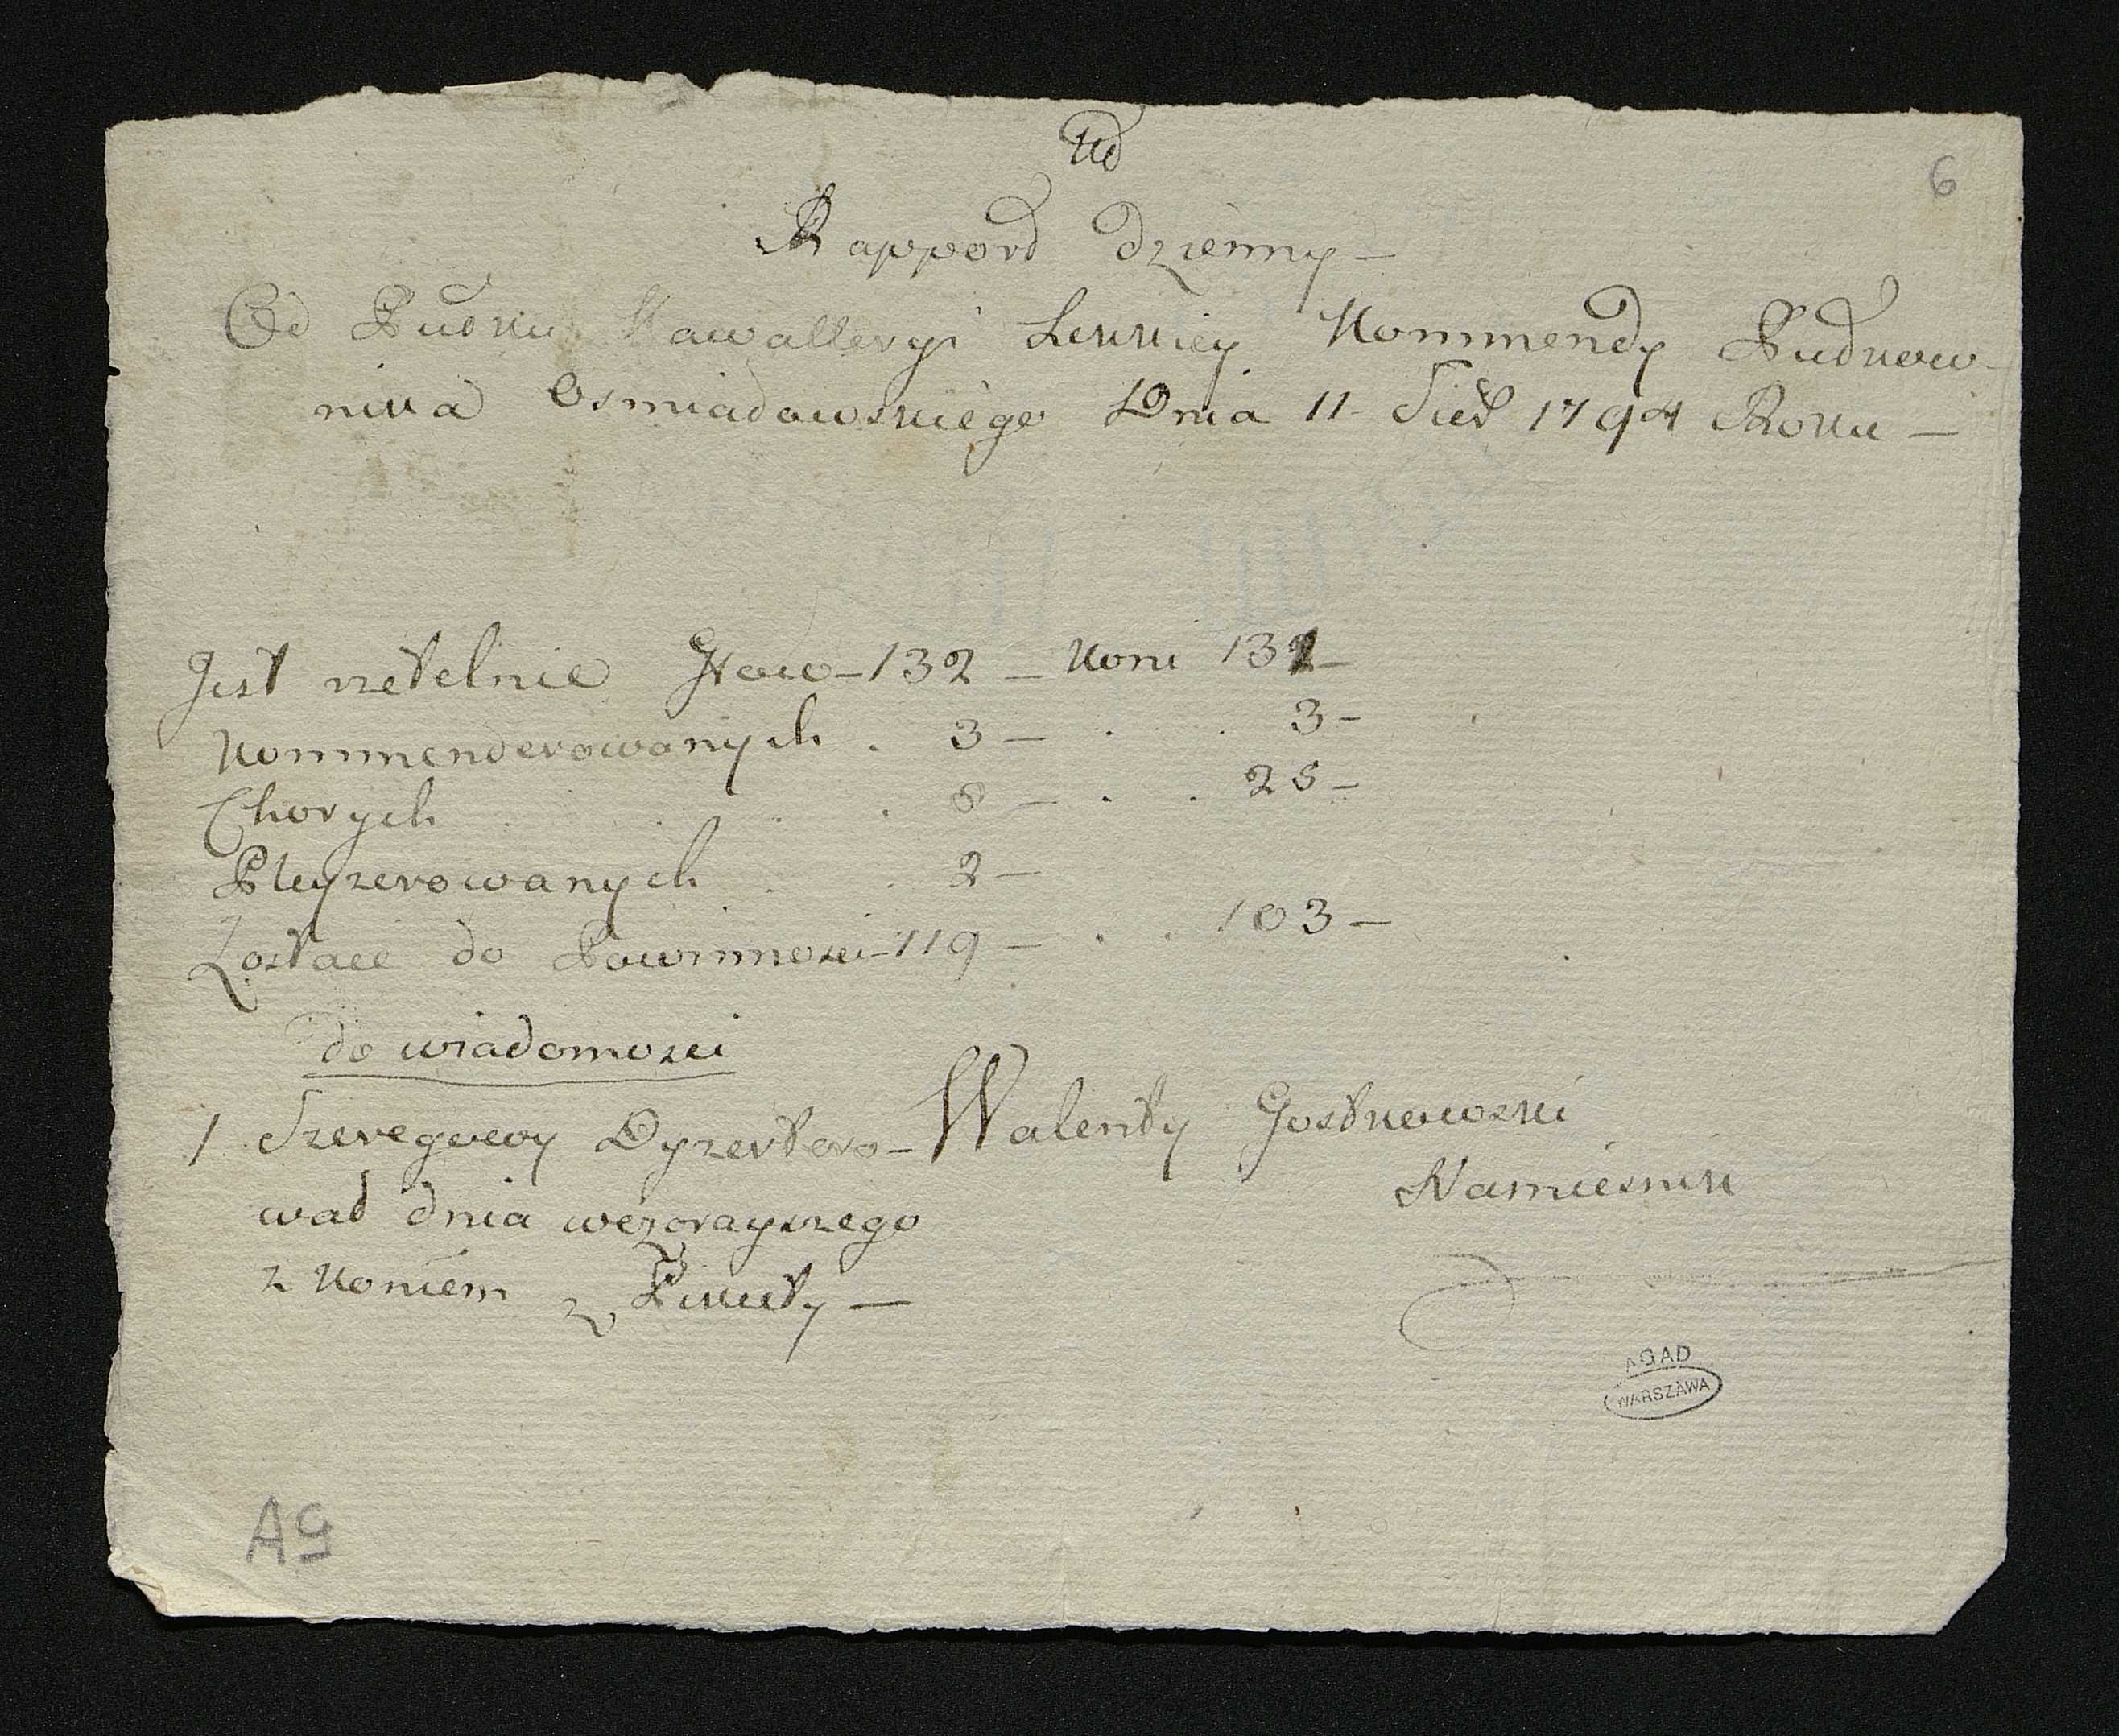 6
Rapport dzienny —
Od Pułku Kawalleryi Lekkiey Kommendy Pułkow-
nika Osmiadowskiego Dnia 11 Sier 1794 Roku —
Jest rzetelnie Głow — 132 — Koni 131 —
Kommenderowanych . 3 — . . 3 —
Chorych . . . . 8 — . . 25 —
Pleyzerowanych . . 2 —
Zostaie do Powinnosci — 119 — . . 103 —
do wiadomosci
1 Szeregowy Dyzertero-
wał dnia wczorayszego
z Koniem z Pikiety —
Walenty Gostkowski
Namiesnik
AGAD
WARSZAWA
A9